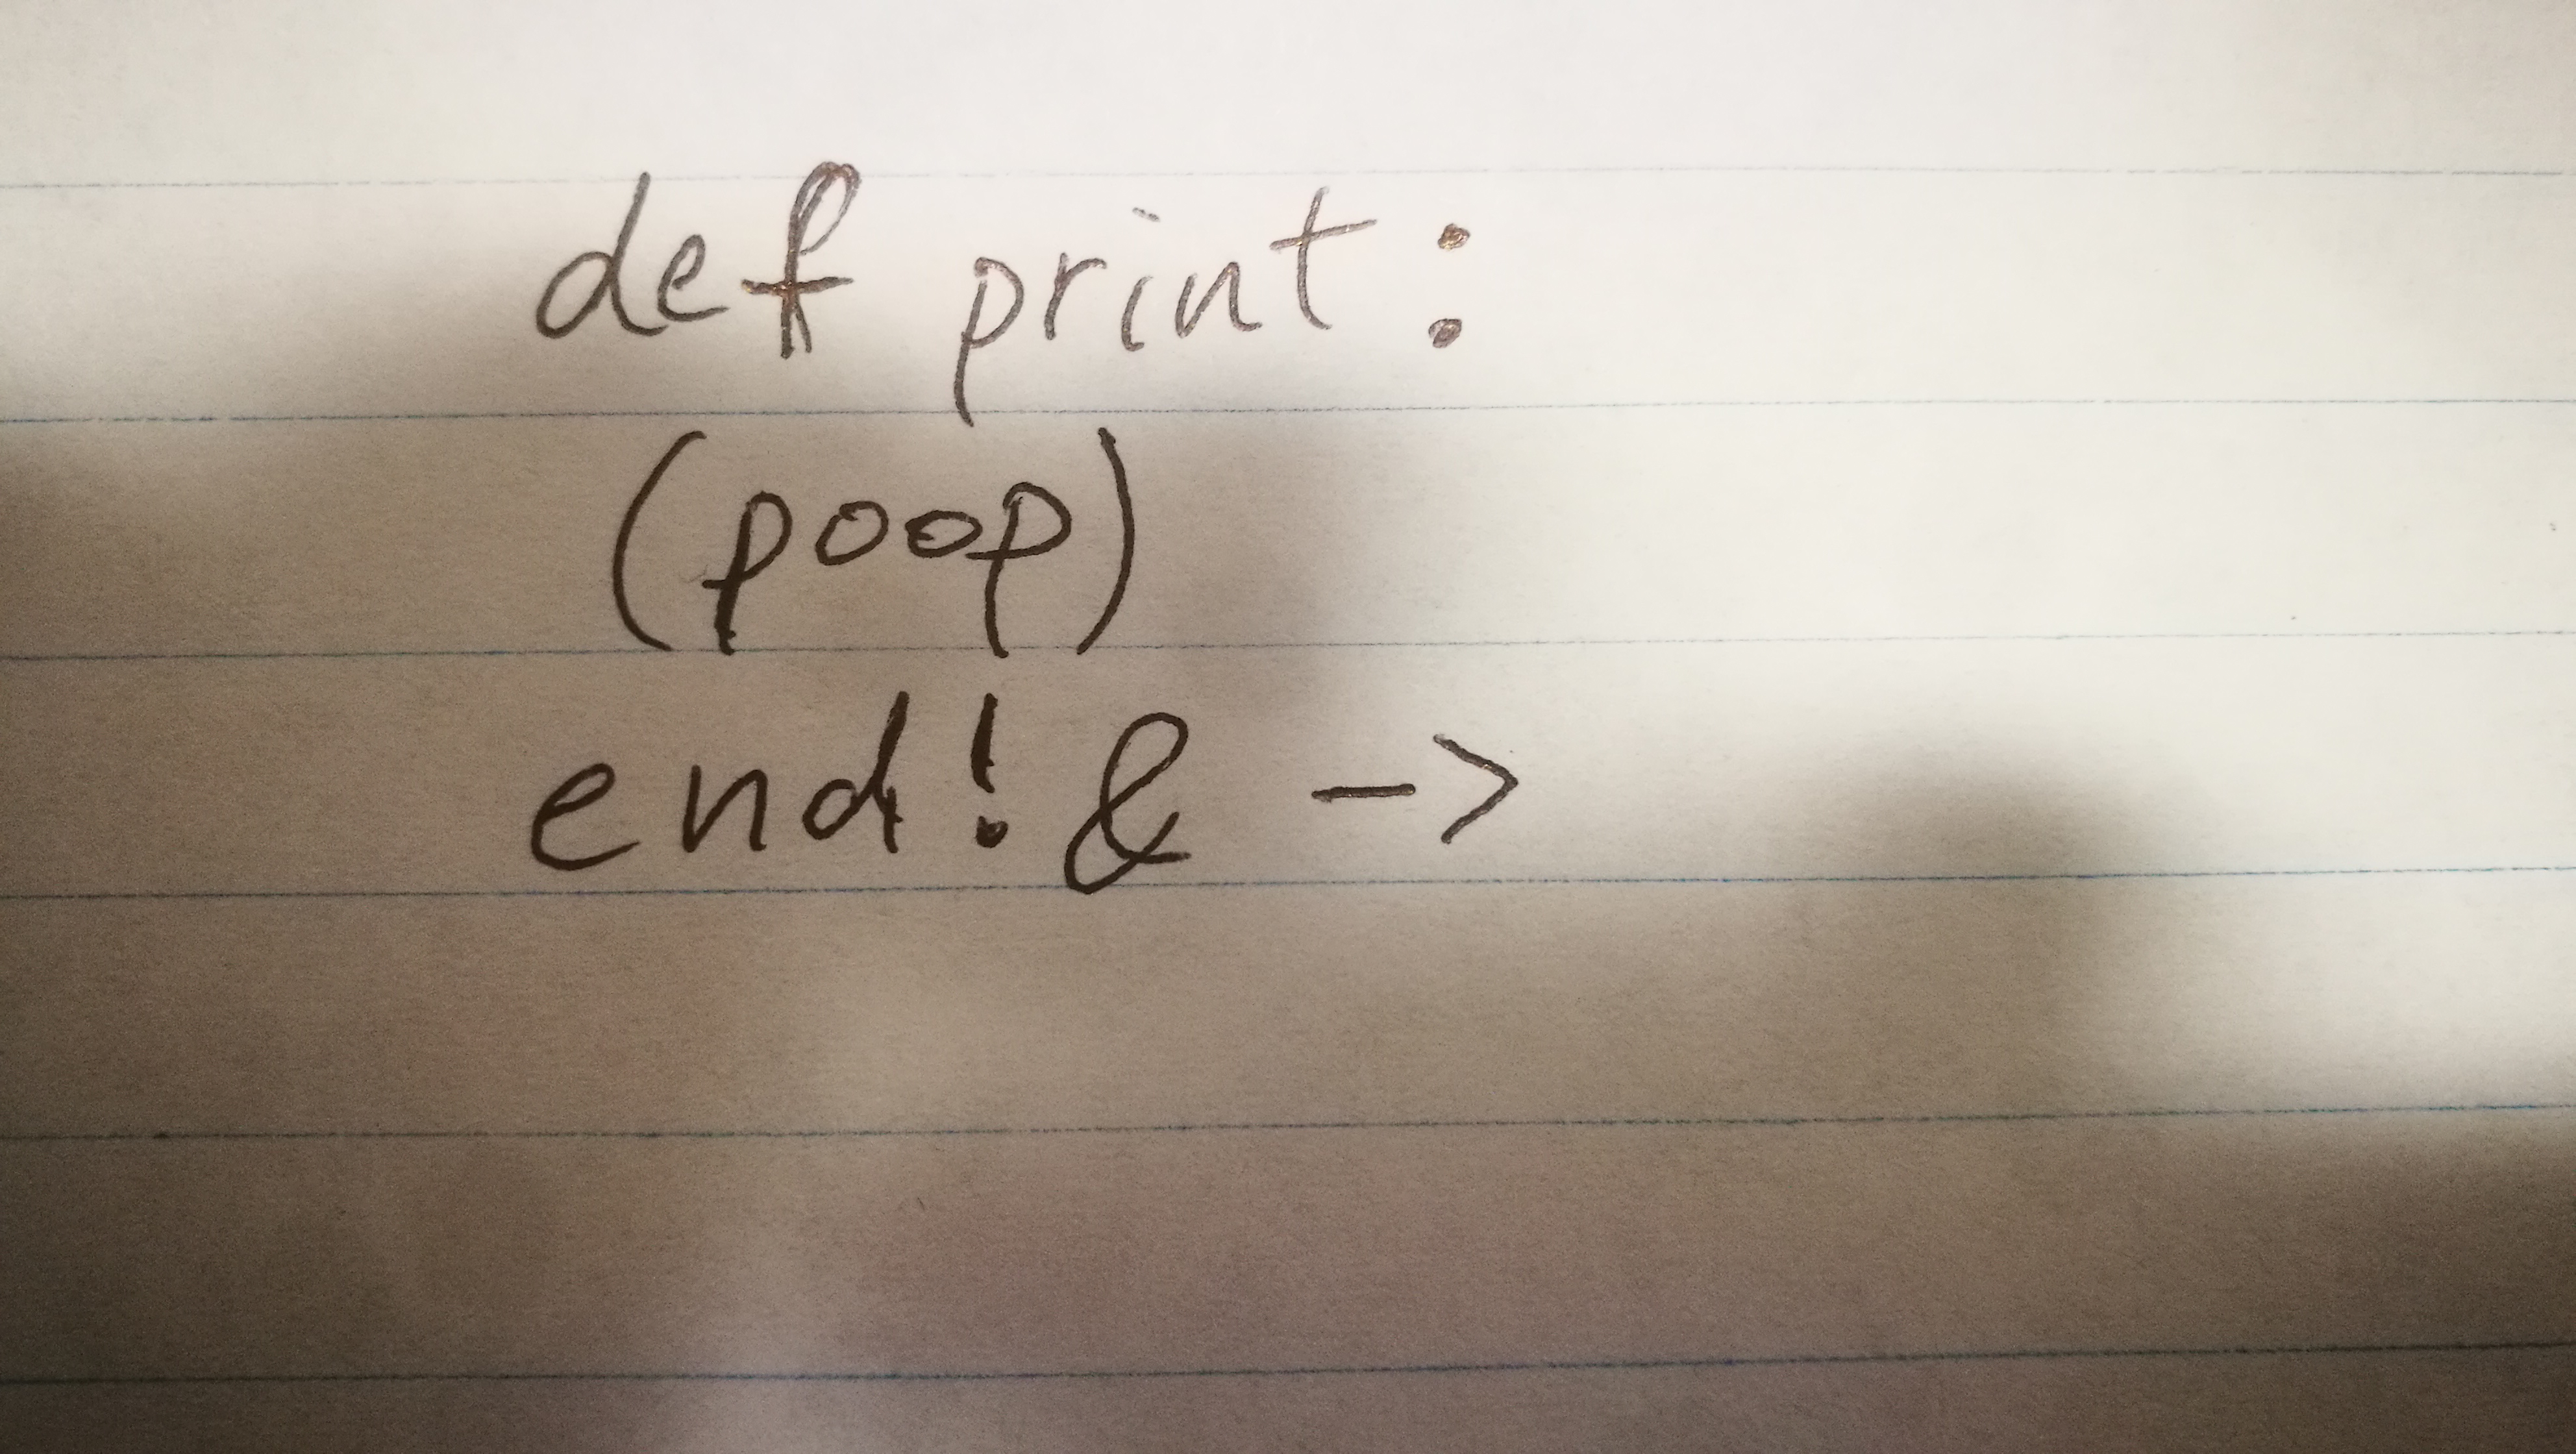 def print:
(poop)
end! & ->